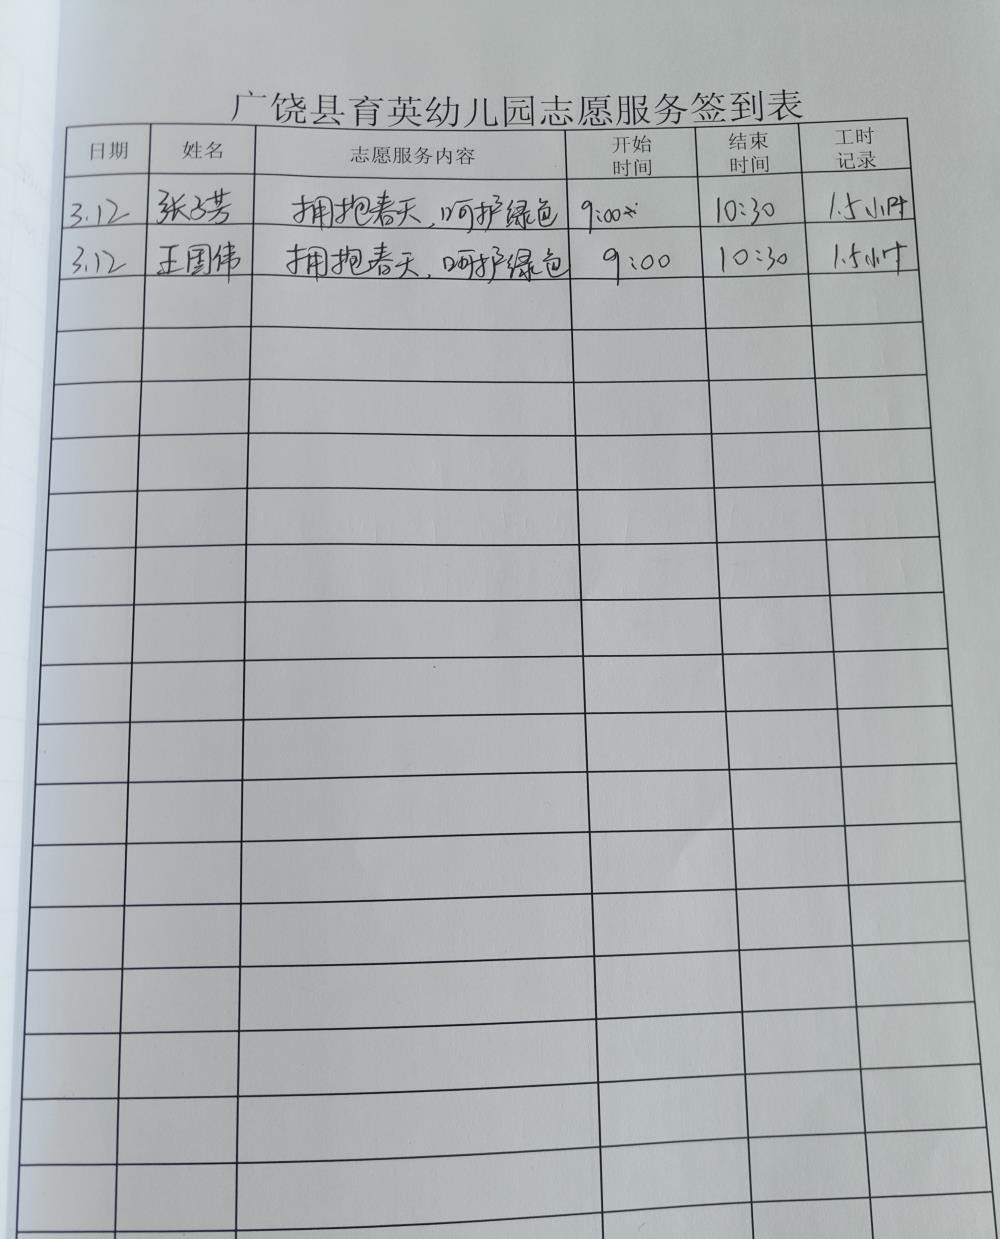 广饶县育英幼儿园志愿服务签到表
日期 姓名 志愿服务内容 开始时间 结束时间 工时记录
3.12 张子芳 拥抱春天,呵护绿色 9:00 10:30 1.5小时
3.12 王国伟 拥抱春天,呵护绿色 9:00 10:30 1.5小时